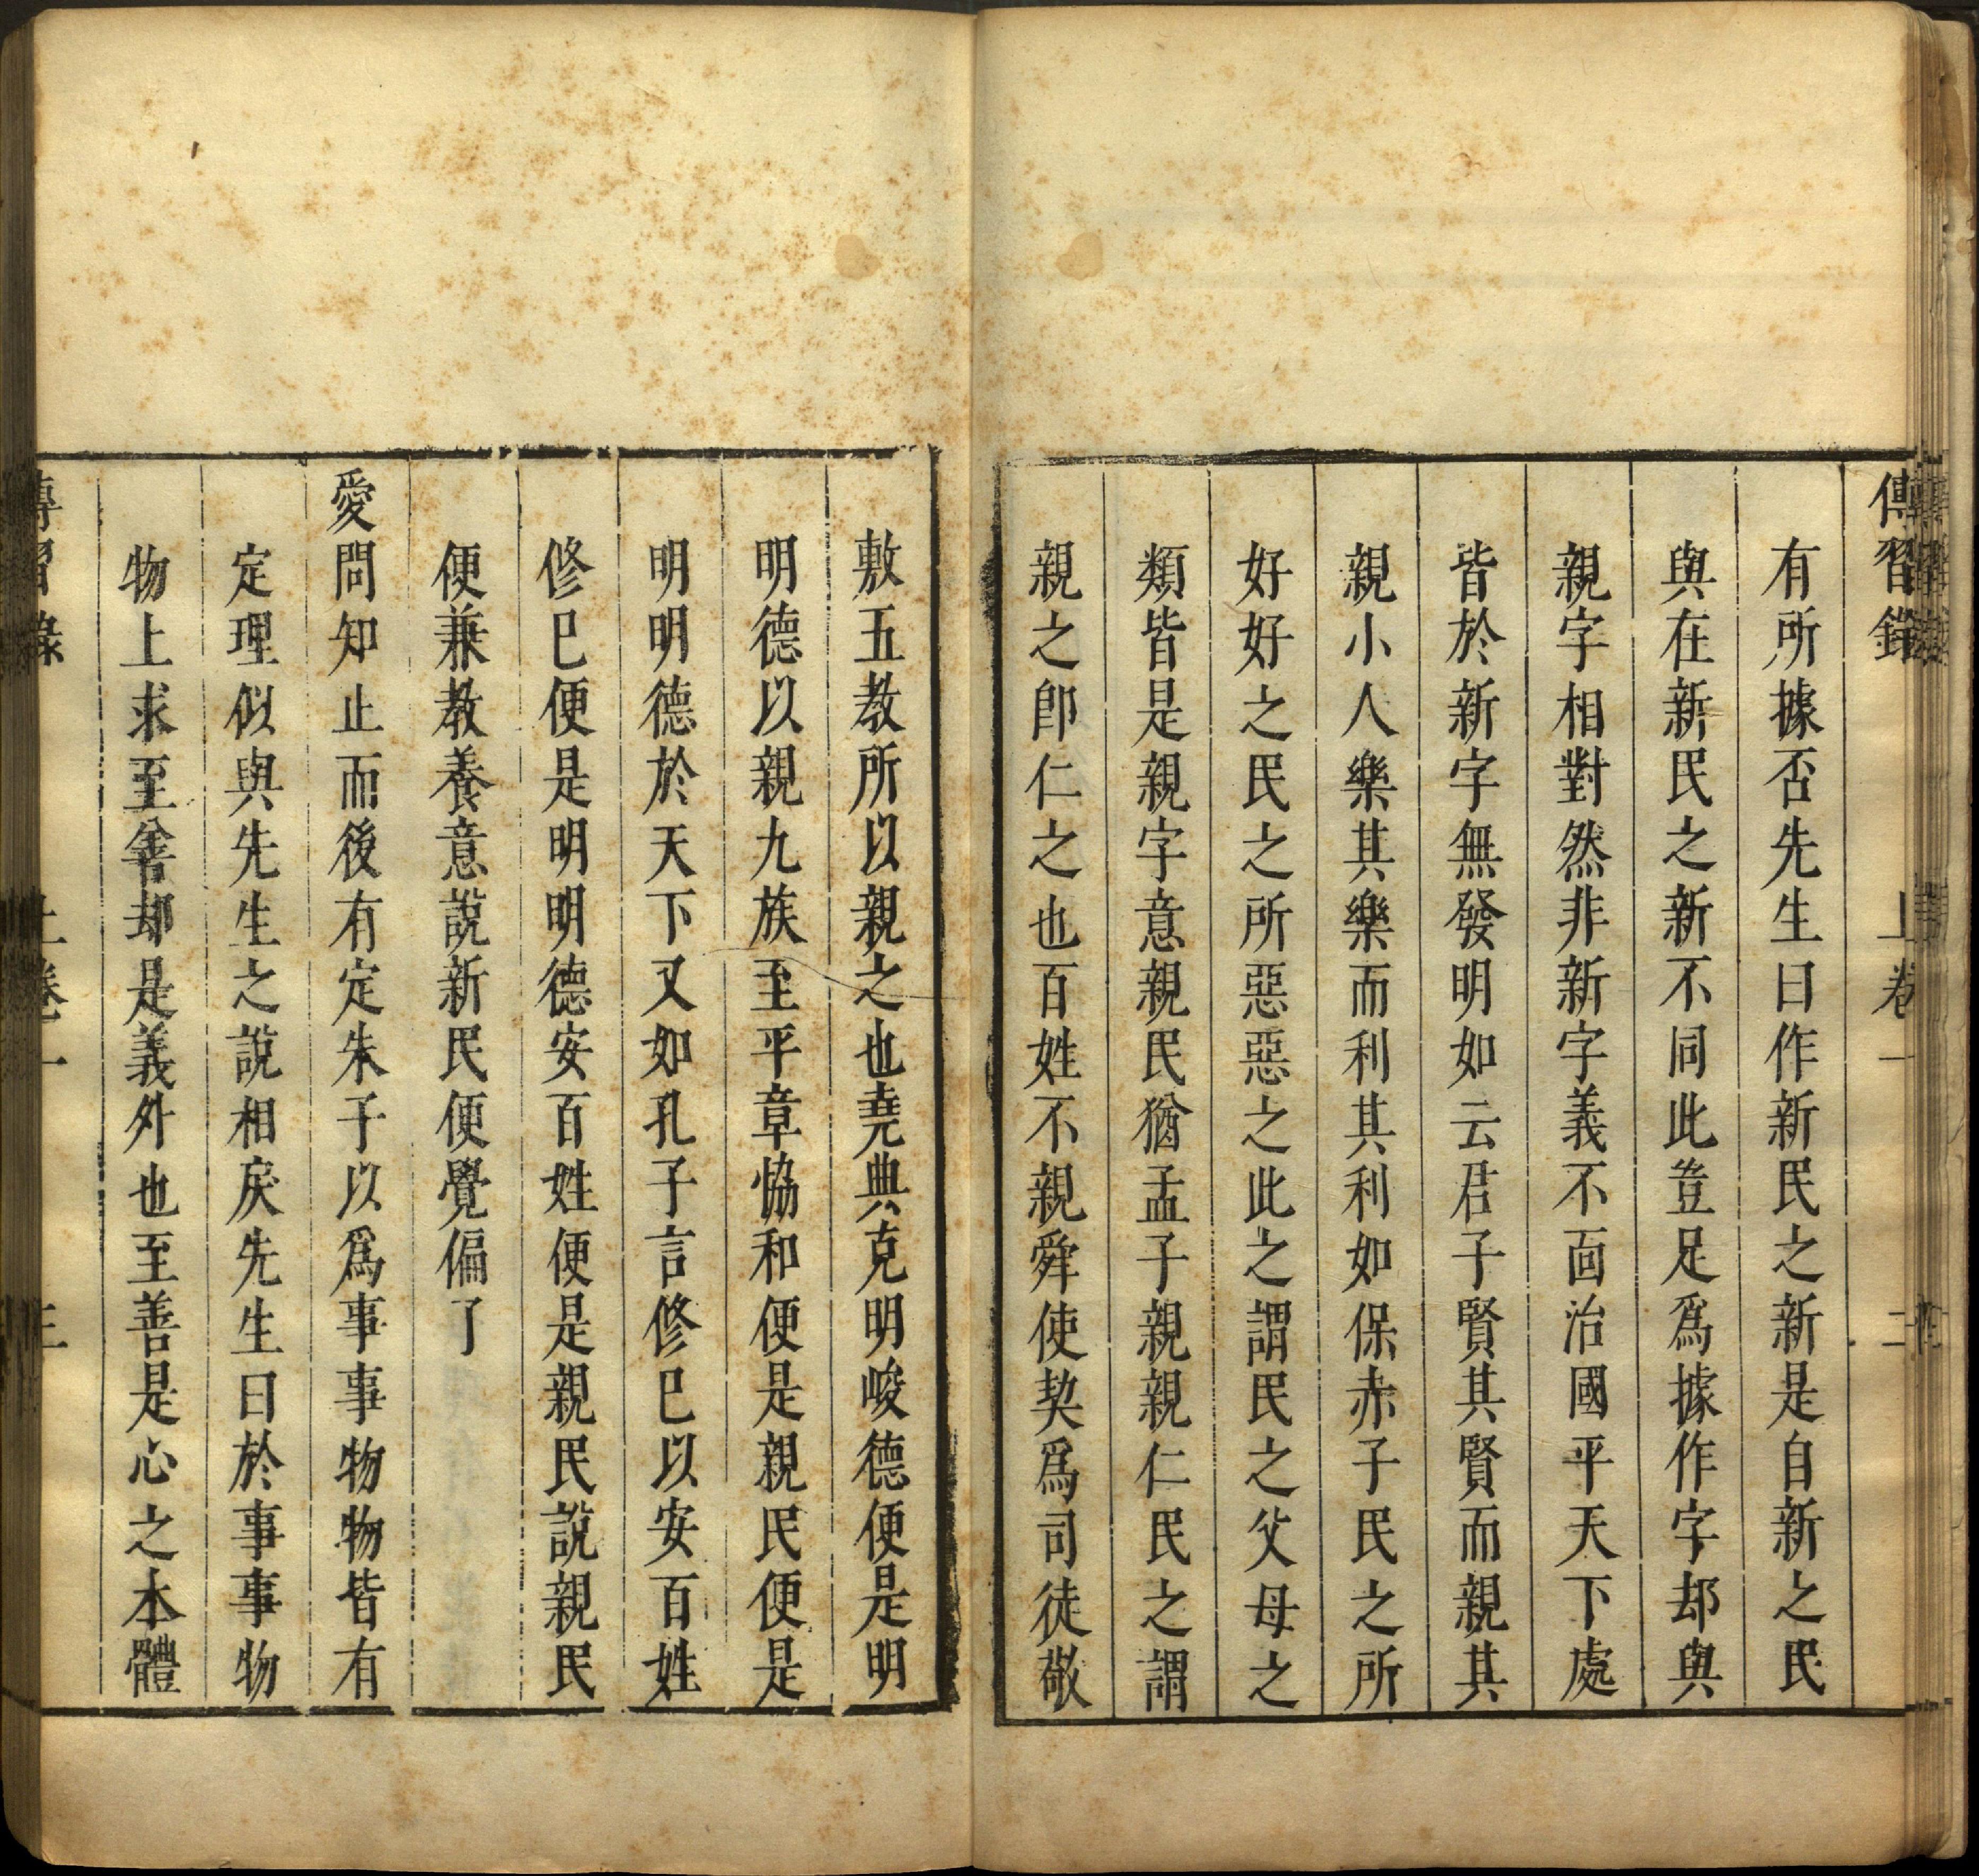 傳習錄 上卷一 二
有所據否先生曰作新民之新是自新之民
與在新民之新不同此豈足爲據作字却與
親字相對然非新字義下面治國平天下處
皆於新字無發明如云君子賢其賢而親其
親小人樂其樂而利其利如保赤子民之所
好好之民之所惡惡之此之謂民之父母之
類皆是親字意親民猶孟子親親仁民之謂
親之卽仁之也百姓不親舜使契爲司徒敬
敷五教所以親之也堯典克明峻德便是明
明德以親九族至平章恊和便是親民便是
明明德於天下又如孔子言修巳以安百姓
修巳便是明明德安百姓便是親民說親民
便兼教養意說新民便覺偏了
愛問知止而後有定朱子以爲事事物物皆有
定理似與先生之說相戾先生曰於事事物
物上求至善却是義外也至善是心之本體
傳習錄 上卷一 三